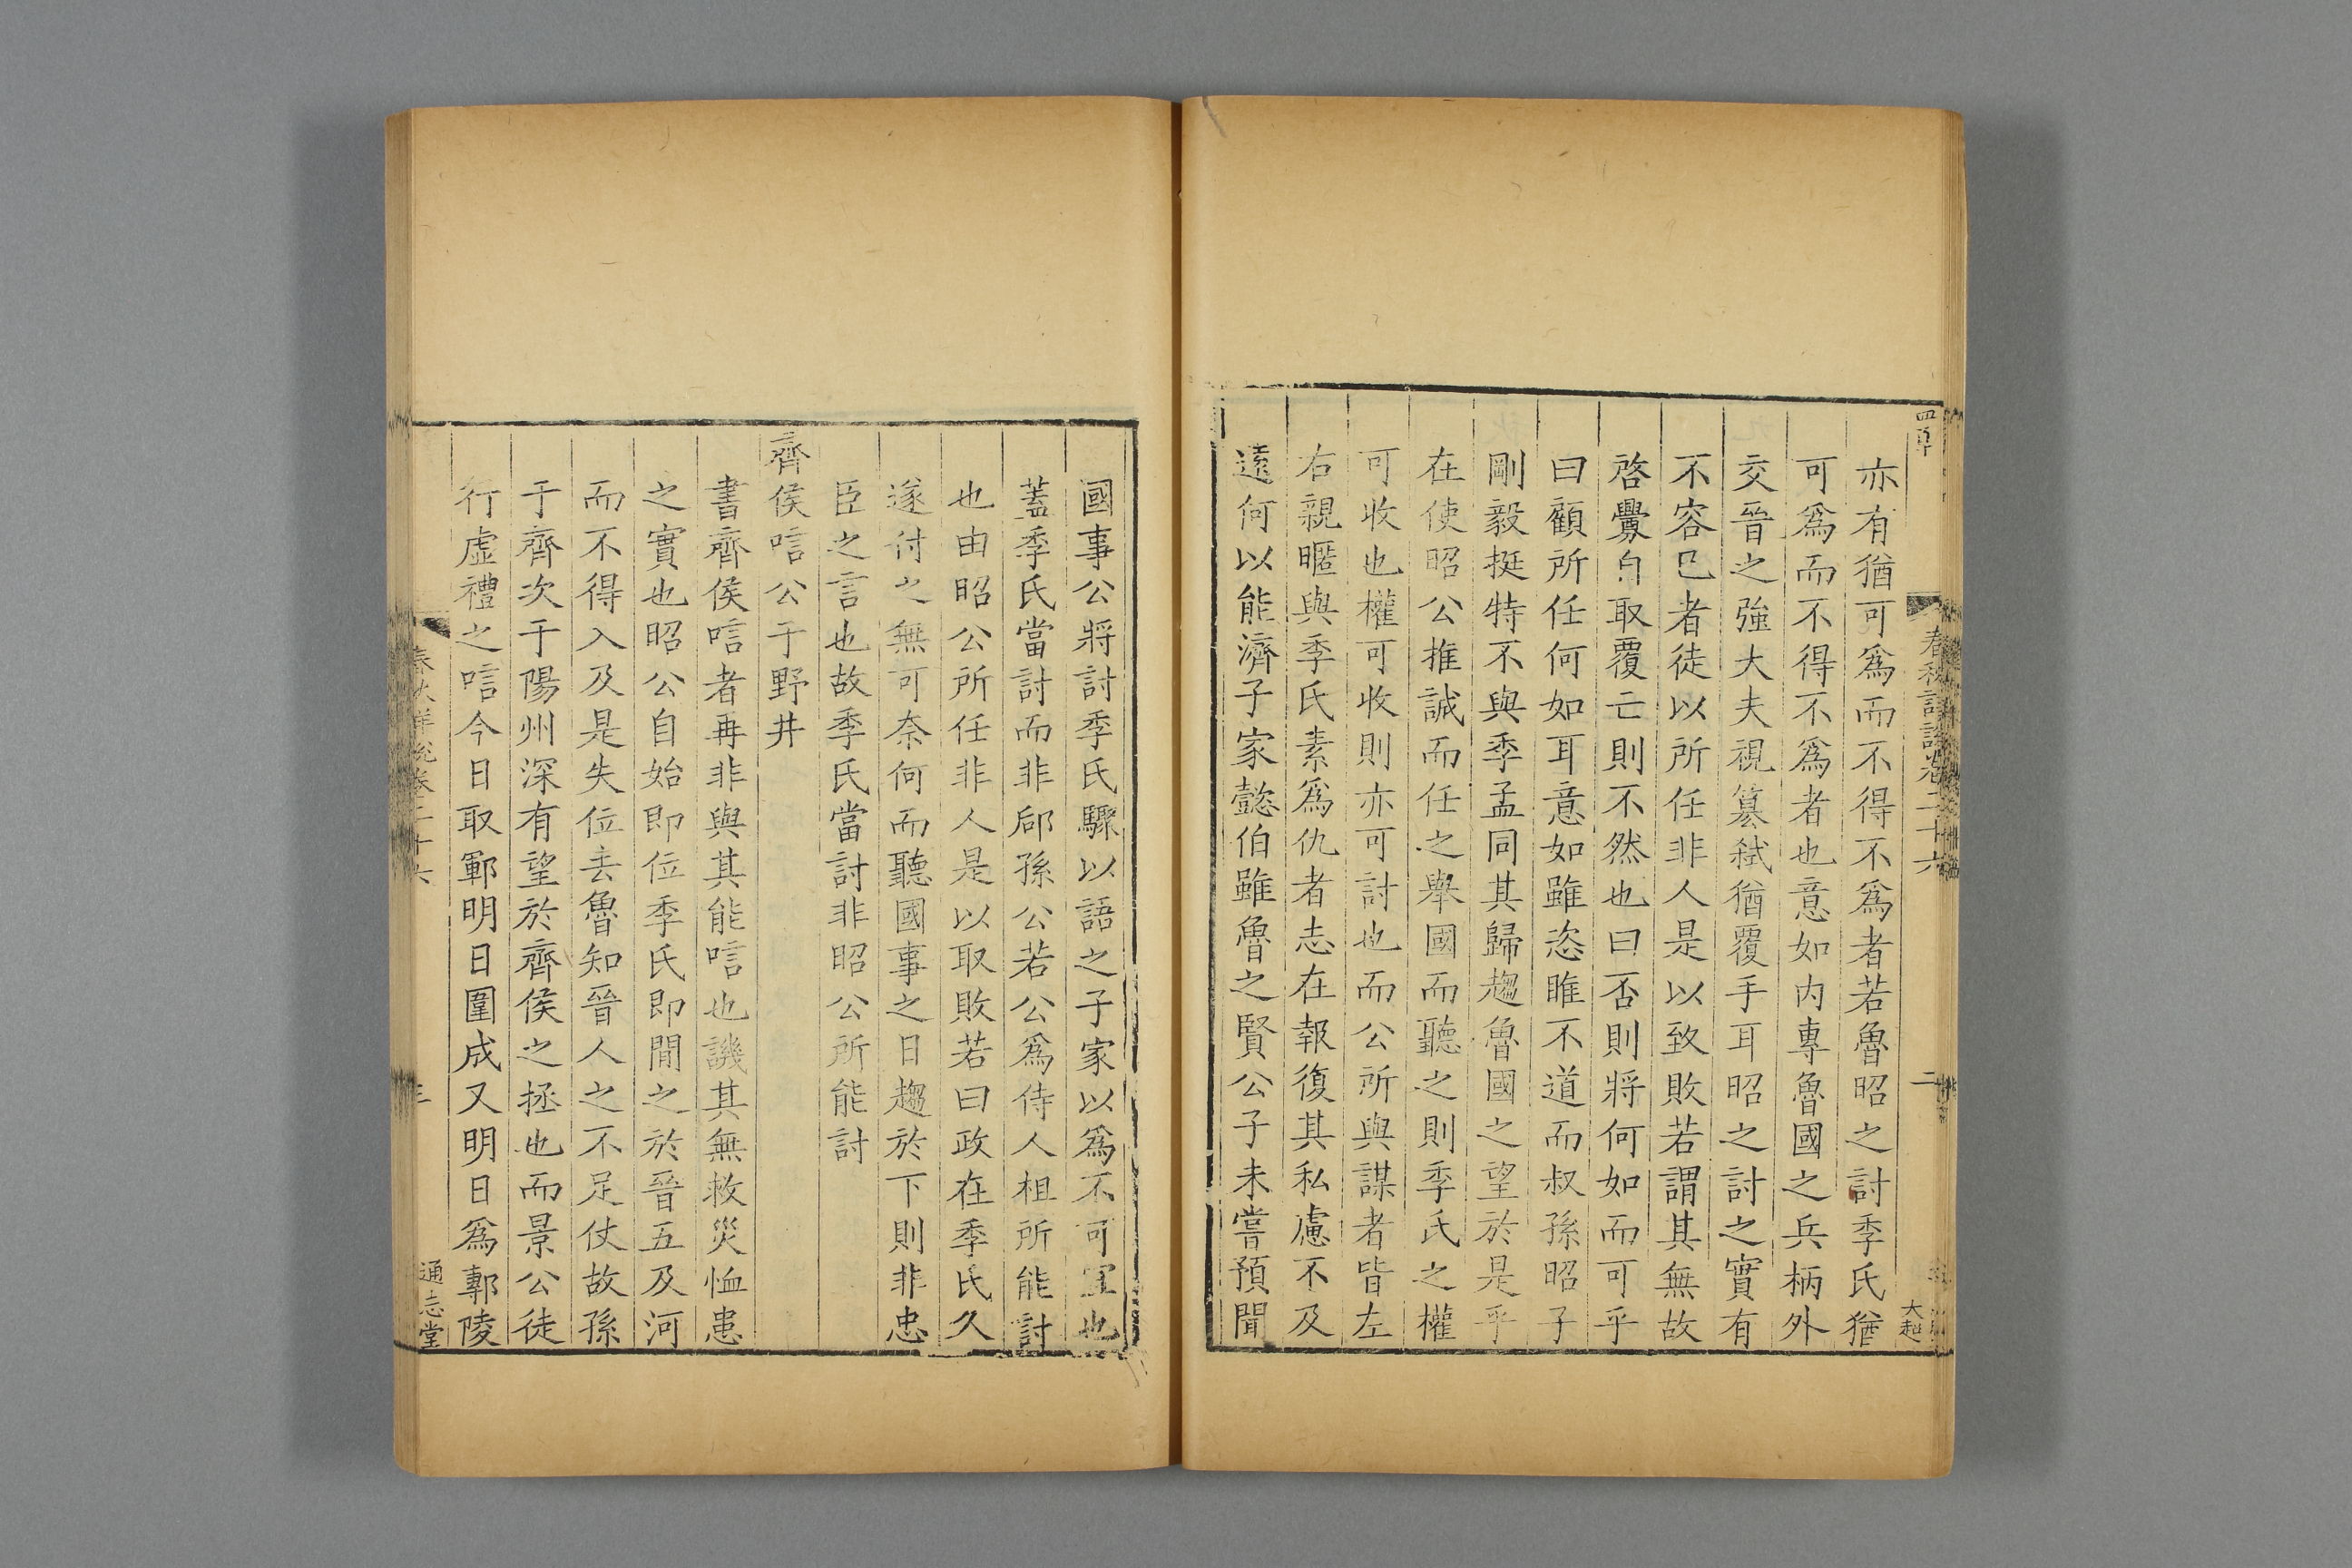 亦有猶可爲而不得不爲者若魯昭之討季氏猶
可爲而不得不爲者也意如内專魯國之兵柄外
交晉之強大夫視簒弑猶覆手耳昭之討之實有
不容已者徒以所任非人是以致敗若謂其無故
啓釁自取覆亡則不然也曰否則將何如而可乎
曰顧所任何如耳意如雖恣睢不道而叔孫昭子
剛毅挺特不與季孟同其歸趨魯國之望於是乎
在使昭公推誠而任之舉國而聽之則季氏之權
可收也權可收則亦可討也而公所與謀者皆左
右親暱與季氏素爲仇者志在報復其私慮不及
遠何以能濟子家懿伯雖魯之賢公子未嘗預聞
春秋詳說卷二十六
二
大超
國事公將討季氏驟以語之子家以爲不可宜也
蓋季氏當討而非郈孫公若公爲侍人柤所能討
也由昭公所任非人是以取敗若曰政在季氏久
遂付之無可奈何而聽國事之日趨於下則非忠
臣之言也故季氏當討非昭公所能討
齊侯唁公于野井
書齊侯唁者再非與其能唁也譏其無救災恤患
之實也昭公自始即位季氏即間之於晉五及河
而不得入及是失位去魯知晉人之不足仗故孫
于齊次于陽州深有望於齊侯之拯也而景公徒
行虛禮之唁今日取鄆明日圍成又明日爲鄟陵
春秋詳說卷二十六
三
通志堂